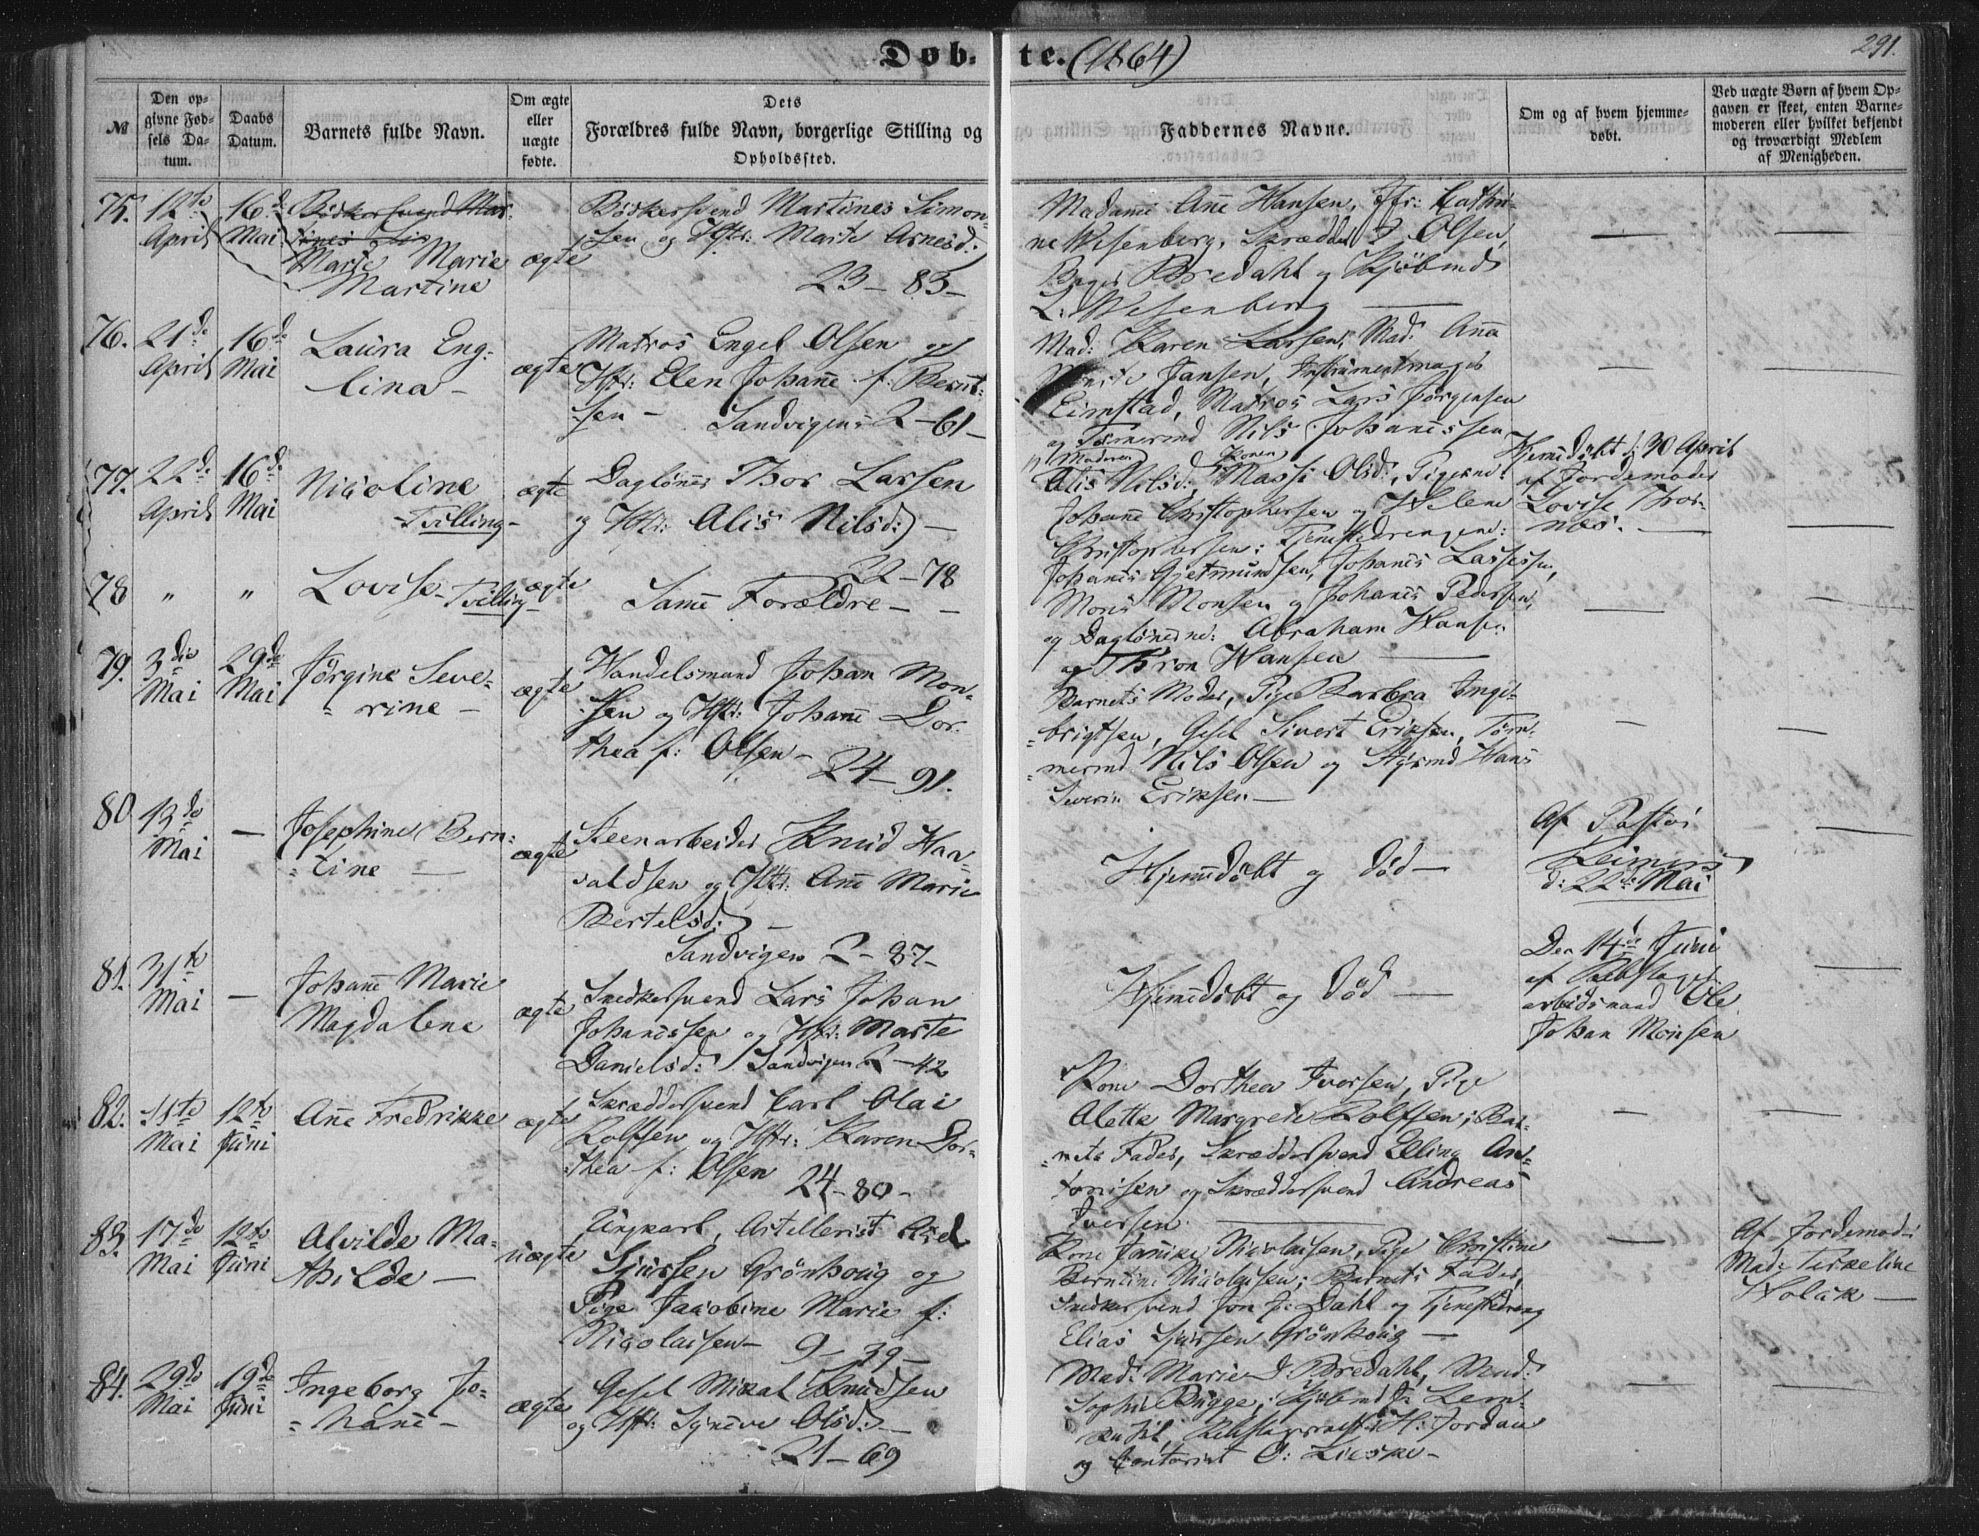 Døb- te. (1864)
291.
№
Den op-
givne Fød-
sels Da-
tum.
Daabs
Datum.
Barnets fulde Navn.
Om ægte
eller
uægte
fødte.
Dets
Forældres fulde Navn, borgerlige Stilling og
Opholdssted.
Faddernes Navne.
Om og af hvem hjemme-
døbt.
Ved uægte Børn af hvem Op-
gaven er skeet, enten Barne-
moderen eller hvilket bekjendt
og troværdigt Medlem
af Menigheden.
75. 12te April
16de Mai
Marie
Marie
Martine
ægte
Bödkersvend Martines Simon-
sen og Hstr: Marte Arnesd:
23 - 83 -
Madame Ane Hansen, Jfr: Cathri-
ne Wesenberg, Skrædder J Olsen,
Bager Bredahl og Kjöbmd
L. Wesenberg
76. 21de April
16de Mai
Laura Eng-
lina -
ægte
Matros Engel Olsen og
Hstr: Elen Johane f: Bernt-
sen - Sandvigen 2 - 61 -
Mad: Karen Larsen, Mad: Ana
Jansen, Instrumentmager
Eimstad, Matros Lars Jörgensen
og Tömermd Nils Johanessen
77. 22de April
16de Mai
Nicoline
- Tvilling -
ægte
Daglönner Thor Larsen
og Hstr: Alis Nilsd: -
22 - 78
Moderen Konen
Alis Nilsd:, Massi Olsd:, Pigerne
Johane Christophersen og Helene
Christophersen; Tjenestedrengene:
Johanes Gjetmundsen, Johanes Lassesen,
Mons Monsen og Johanes Pedersen,
og Daglönerne: Abraham Hansen
og Thron Hansen
Hjemedöbt d: 30 April
af Jordemoder
Lovise Thor-
næs. -
78 " "
Lovise - Tvilling -
ægte
Same Forældre - -
79. 3die Mai
29de Mai
Jörgine Seve-
rine -
ægte
Handelsmand Johan Mon-
sen og Hstr: Johane Dor-
thea f: Olsen -
24 - 91.
Barnets Moder, Pige Barbra Ingi-
brigtsen, Gesel Sivert Eriksen, Töm-
mermd Nils Olsen og Styrmd Hans
Severin Eriksen -
80 13de Mai
-
Josephine Bern-
tine -
ægte
Steenarbeider Knud Haa-
valdsen og Hstr: Ane Marie
Bertelsd: -
Sandvigen 2 - 87 -
Hjemedöbt og död -
Af Pastor
Reimers
d: 22de Mai
81. 31te Mai
-
Johane Marie
Magdalene
ægte
Snedkersvend Lars Johan
Johanessen og Hstr: Marte
Danielsd: Sandvigen 2 - 42
Hjemedöbt og död -
Den 14de Juni
af
arbeidsmand Ole
Johan Monsen
82. Mai
12te Juni
Ane Fredrikke
ægte
Skræddersvend Carl Olai
Rolfsen og Hstr: Karen Dor-
thea f: Olsen
24 - 80 -
Kone Dorthea Iversen, Pige
Alette Margrete Rolfsen; Bar-
nets Fader, Skræddersvend Elling An-
tonisen og Skræddersvend Andreas
Iversen -
83. 17de Mai
12te Juni
Alvilde Ma-
thilde -
uægte
Ungkarl, Artillerist Axel
Sjursen Grönhoug og
Pige Jacobine Marie f:
Nicolaisen - 9 - 39 -
Kone Janike Nicolaisen, Pige Christine
Berntine Nicolaisen; Barnets Fader,
Snedkersvend Jon P. Dahl og Tjenestedreng
Elias Sjursen Grönhoug -
Af Jordemod:
Mad: Terkeline
Holck -
84. 29de Mai
19de Juni
Ingeborg Jo-
hane -
ægte
Gesel Mikal Knudsen
og Hstr: Synneve Olsd: -
21 - 69
Mad: Marie J Bredahl, Mad:
Sophie Bugge; Kjöbmd
H: Jordan
og Contorist C: Lieske -